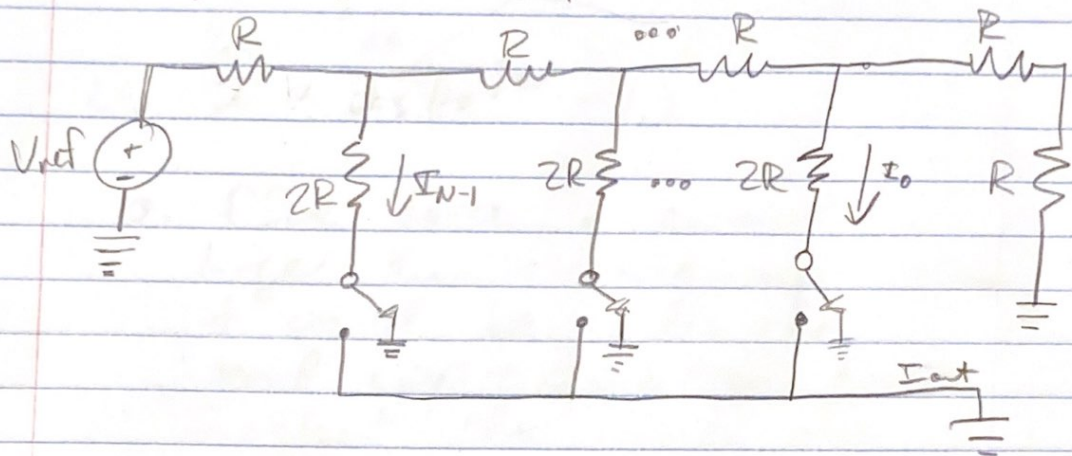 R R ... R R
Vref + - 2R I_{N-1} 2R ... 2R I_0 R
Iout